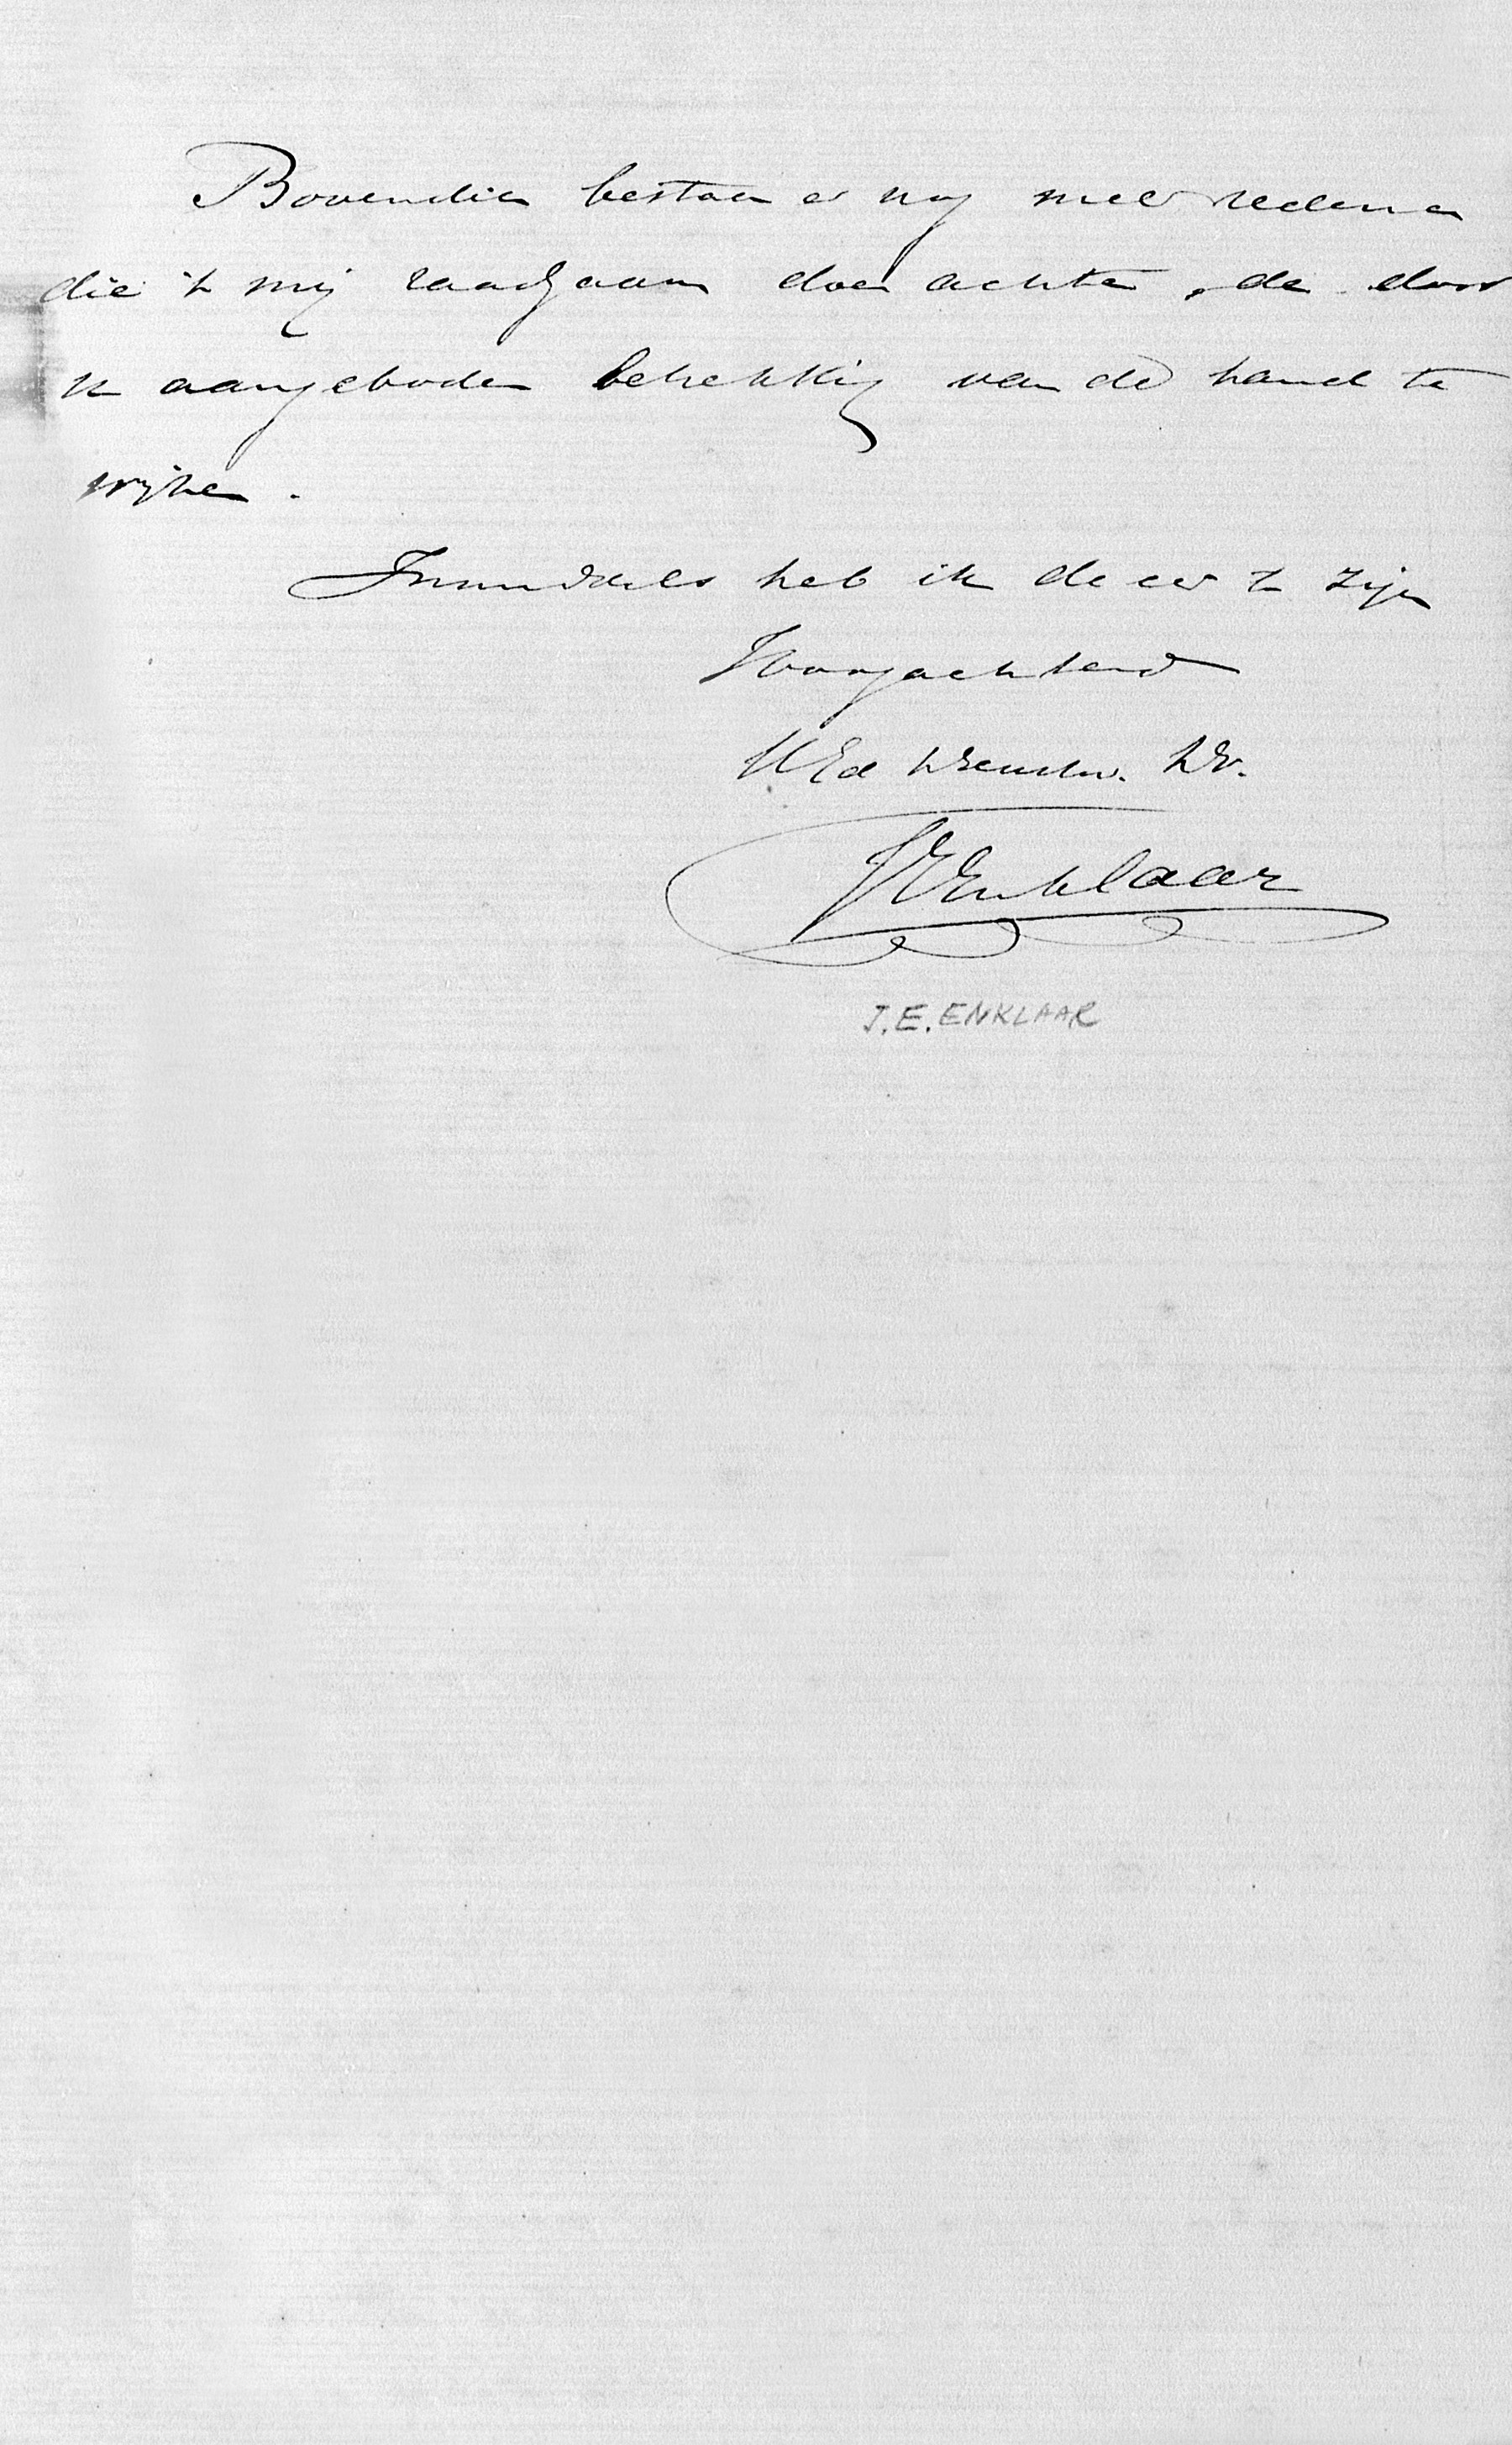 Bovendien bestaan er nog meer redenen
die 't mij raadzaam doen achten, de door
U aangeboden betrekking van de hand te
wijzen.
Inmiddels heb ik de eer te zijn
Hoogachtend
UEd dienstw. Dr.
JEEnklaar
J.E. ENKLAAR